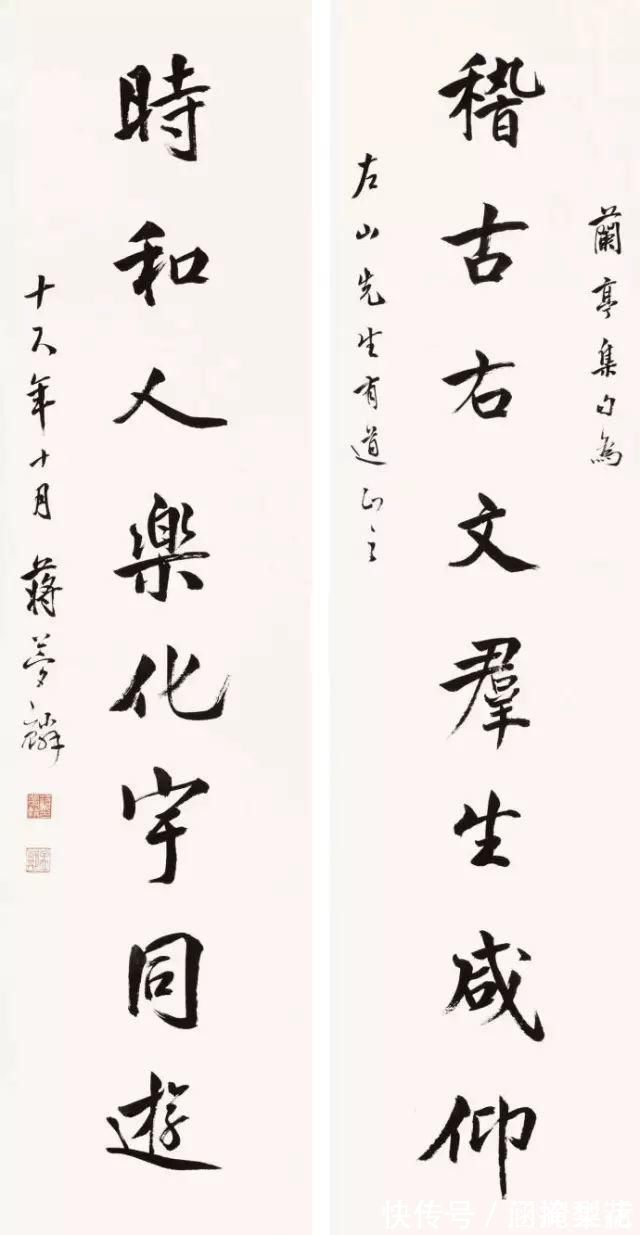 蘭亭集句為
稽古右文羣生咸仰
左山先生有道正之
時和人樂化宇同遊
十八年十月蔣夢麟
快传号/涵掩梨